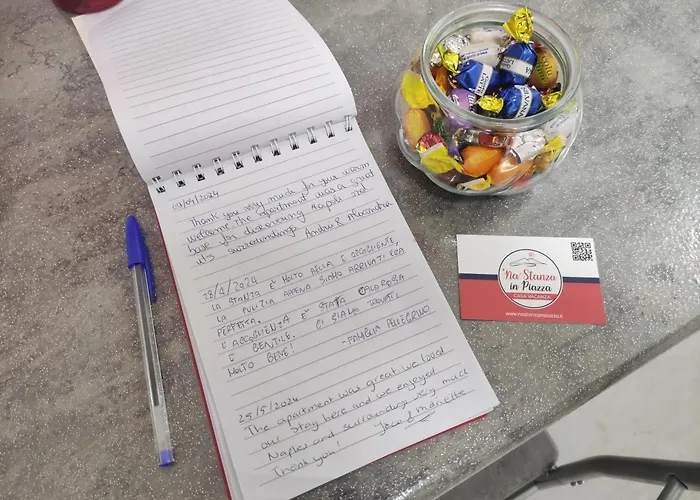 09/04/2024
Thank you very much for your warm
welcome the apartment was a great
base for discovering Napoli and
its surroundings Andrus & Alexandra
28/4/2024
LA STANZA È MOLTO BELLA E ACCOGLIENTE,
LA PULIZIA APPENA SIAMO ARRIVATI ERA
PERFETTA.
L'ACCOGLIENZA È STATA CALOROSA
E GENTILE. CI SIAMO TROVATI
MOLTO BENE!
- FAMIGLIA PELLEGRINO
25/5/2024
The apartment was great we loved
our stay here and we enjoyed
Naples and surroundings very much
Thank you! Jaco & Mariette
'Na Stanza
in Piazza
CASA VACANZA
www.nastanzainpiazza.it